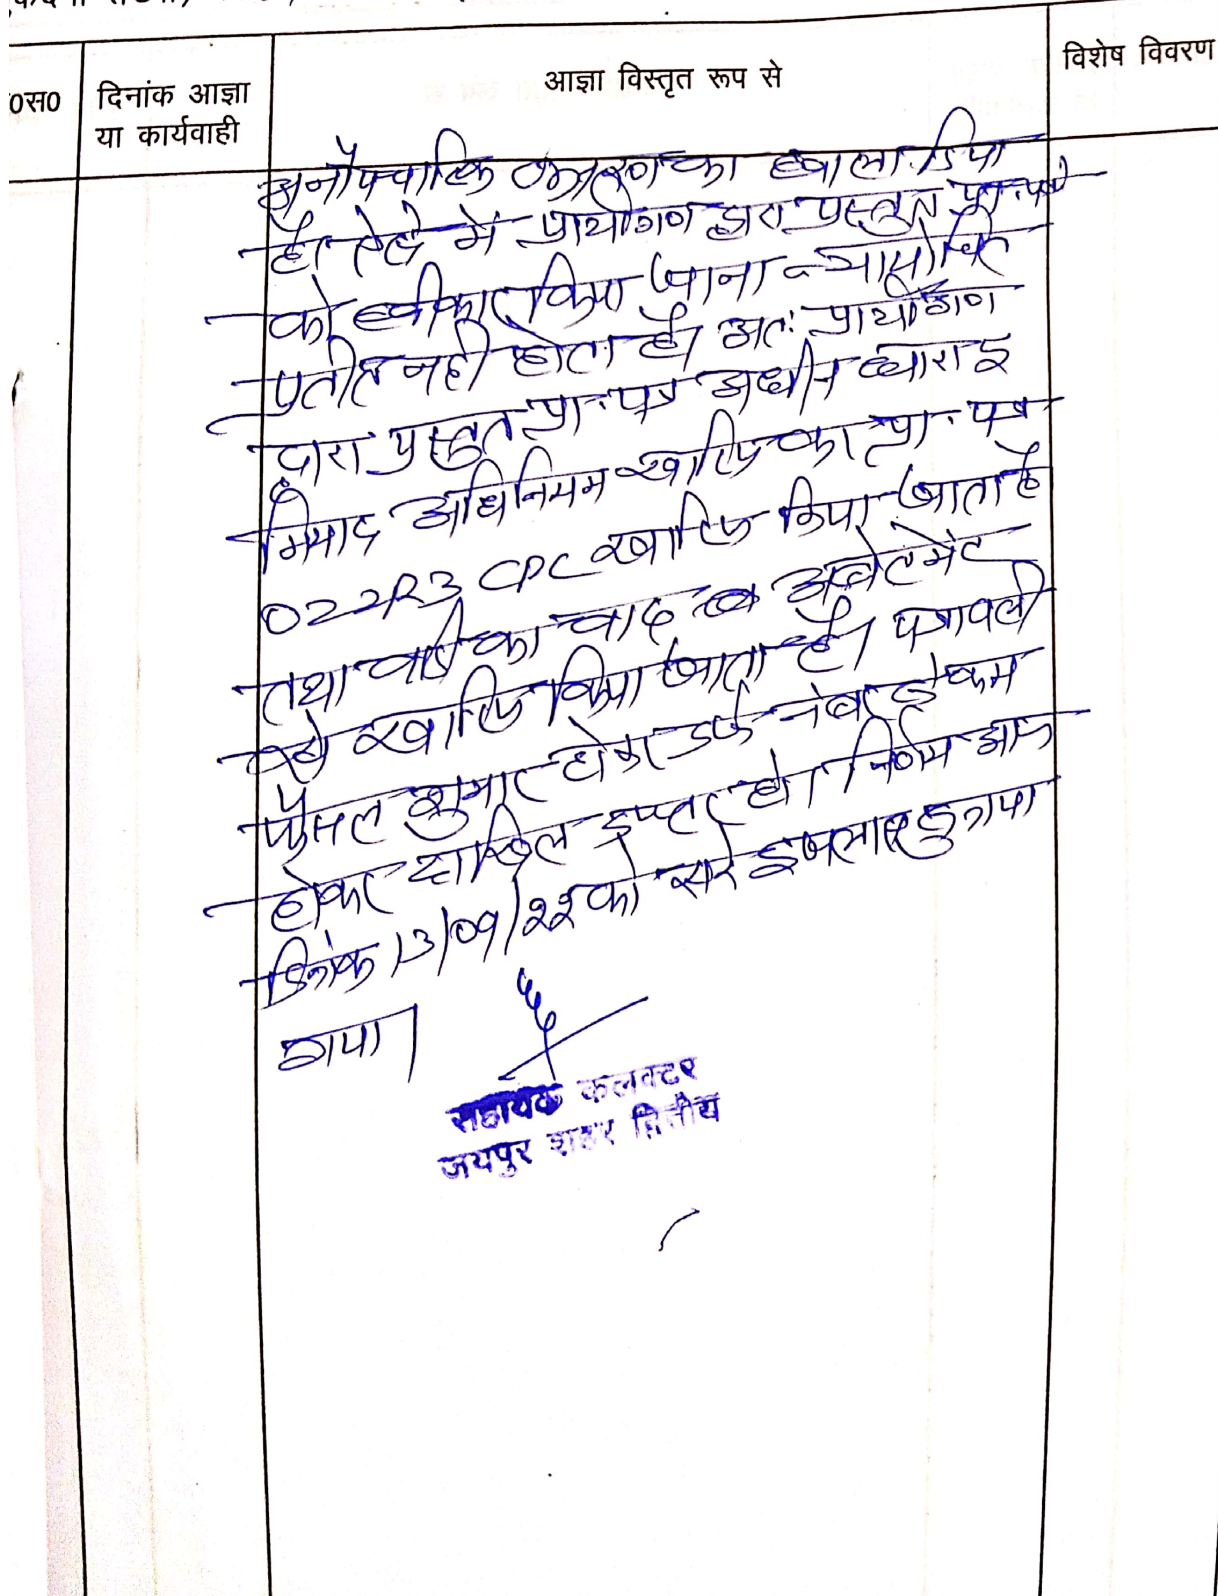 ०स० दिनांक आज्ञा आज्ञा विस्तृत रूप से विशेष विवरण
या कार्यवाही
का हवाला दिया
है। ऐसे में प्रार्थीगण द्वारा प्रस्तुत प्रा. पत्र
को स्वीकार किया जाना न्यायोचित
प्रतीत नहीं होता है। अतः प्रार्थीगण
द्वारा प्रस्तुत प्रा. पत्र अधीन धारा 5
मियाद अधिनियम खारिज कर प्रा. पत्र
O22R3 CPC खारिज किया जाता है
तथा वादी का वाद अबेटमेंट
खारिज किया जाता है। पत्रावली
फैसल शुमार होकर नंबर से कम
होकर दाखिल दफ्तर हो। निर्णय आज
दिनांक 13/09/22 को सरे इजलास सुनाया
गया।
सहायक कलक्टर
जयपुर शहर द्वितीय